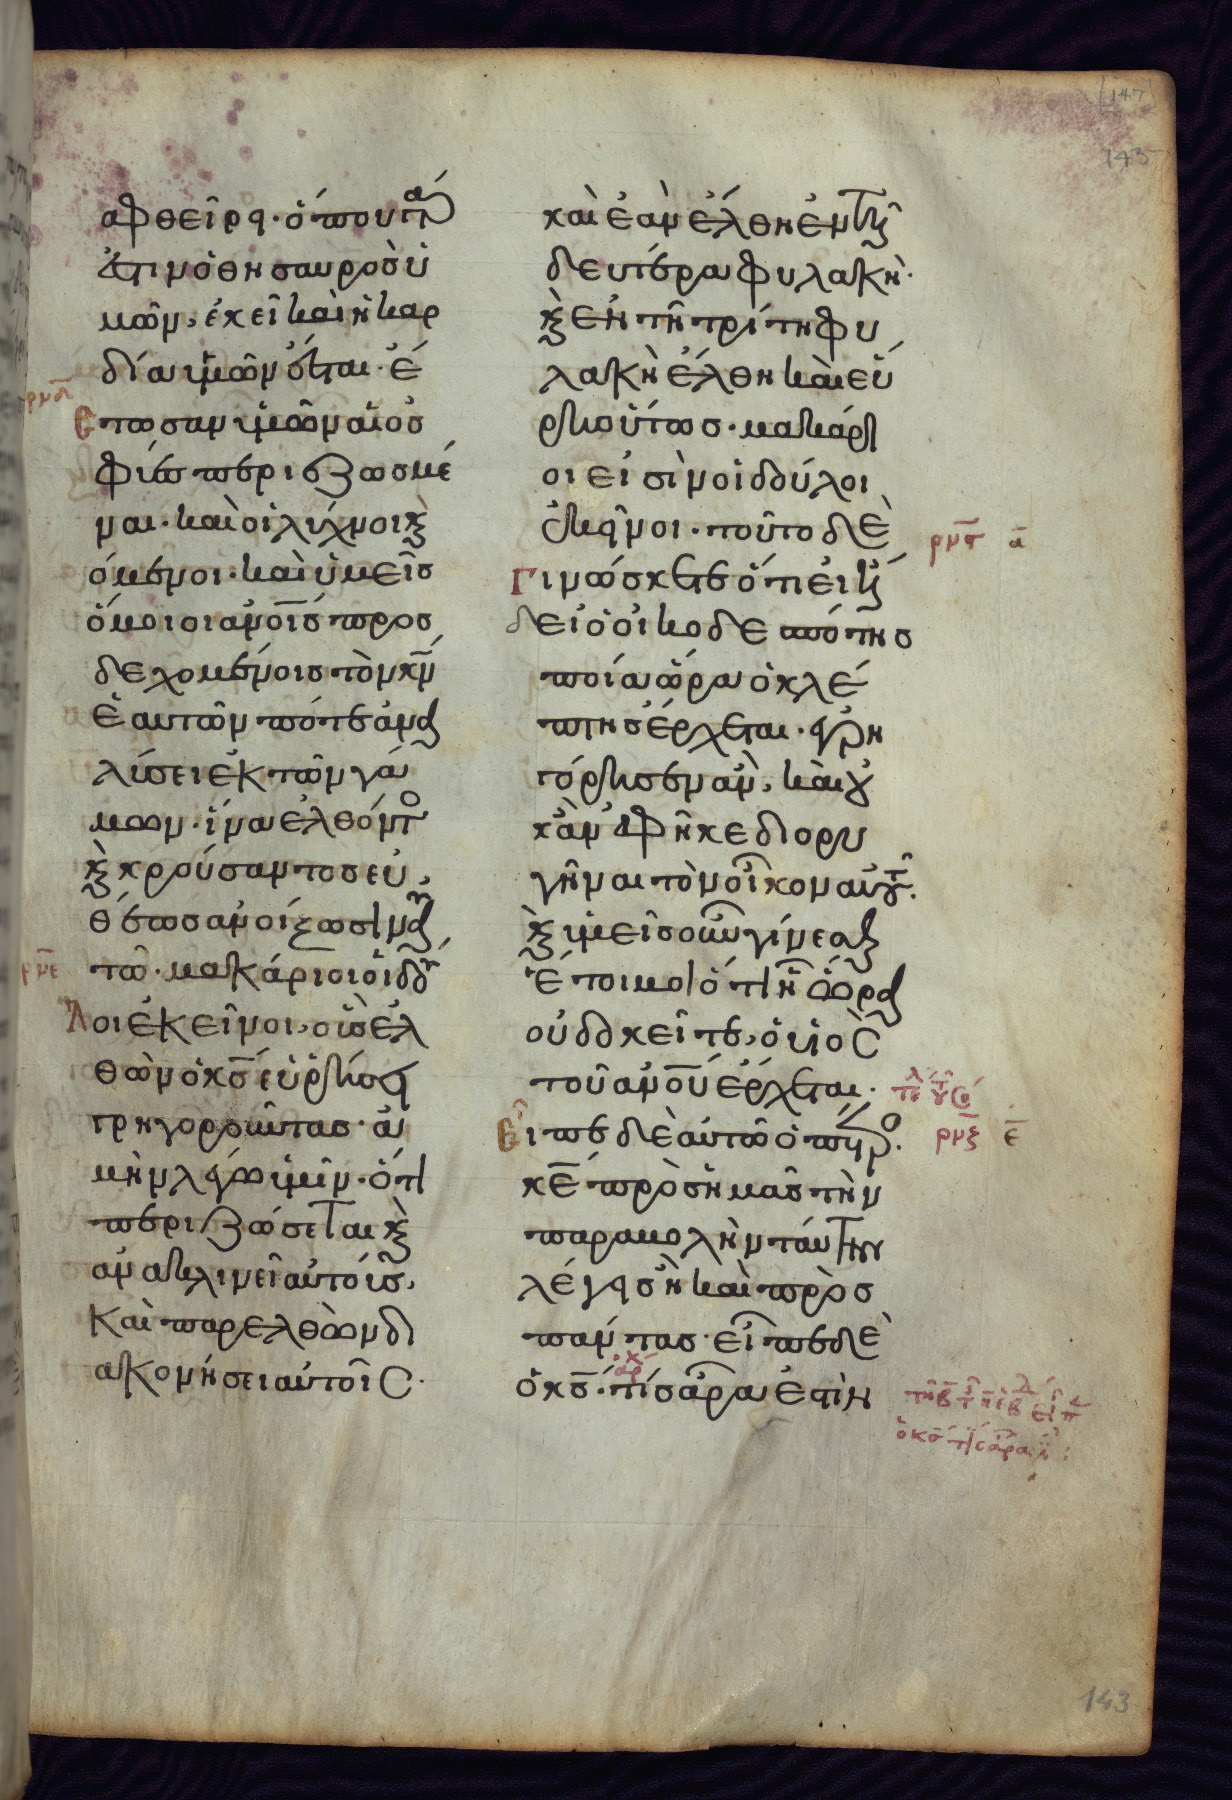 αφθείρει· ὅπου γάρ
ἐστιν ὁ θησαυρὸς ὑ
μῶν, ἐκεῖ καὶ ἡ καρ
δία ὑμῶν ἔσται· ἔ
στωσαν ὑμῶν αἱ ὀσ
φύες περιεζωσμέ
ναι· καὶ οἱ λύχνοι κ(αὶ)
όμενοι· καὶ ὑμεῖς
ὅμοιοι ἀν̅ο̅ι̅ς προσ
δεχομένοις τὸν κ̅ν̅
ἑαυτῶν πότε ἀνα
λύσει ἐκ τῶν γά
μων· ἵνα ἐλθόντο(ς)
κ(αὶ) κρούσαντος εὐ
θέως ἀνοίξωσιν αὐ
τῶ· μακάριοι οἱ δοῦ
λοι ἐκεῖνοι, οὓς ἐλ
θὼν ὁ κ̅ς̅ εὑρήσει
γρηγοροῦντας· ἀ
μὴν λέγω ὑμῖν· ὅτι
περιζώσεται κ(αὶ)
ἀνακλινεῖ αὐτούς,
Καὶ παρελθὼν δι
ακονήσει αὐτοῖς·
καὶ ἐὰν ἔλθη ἐν τῆ
δευτέρα φυλακῆ·
κ(αὶ) ἐν τῆ τρίτη φυ
λακῆ ἔλθη καὶ εὕ
ρη οὕτως· μακάρι
οι εἰσὶν οἱ δοῦλοι
ἐκεῖνοι· τοῦτο δὲ
Γινώσκετε ὅτι εἰ ἤ
δει ὁ οἰκοδεσπότης
ποία ὥρα ὁ κλέ
πτης ἔρχεται· ἐγρη
γόρησεν ἄν, καὶ οὐ
κ ἂν ἀφῆκε διορυ
γῆναι τὸν οἶκον αὐτοῦ.
κ(αὶ) ὑμεῖς οὖν γίνεσθ(ε)
ἕτοιμοι ὅτι ἧ ὥρα
οὐ δοκεῖτε, ὁ υἱὸς
τοῦ ἀν̅ο̅υ̅ ἔρχεται·
Εἶπε δὲ αὐτῶ ὁ πέτρο(ς).
κ̅ε̅ πρὸς ἡμᾶς τὴν
παραβολὴν ταύτην
λέγεις ἢ καὶ πρὸς
πάντας· εἶπε δὲ
ὁ κ̅ς̅· τίς ἄρα ἐστὶν
ρμε
ρμϛ α
ρμζ ε
143